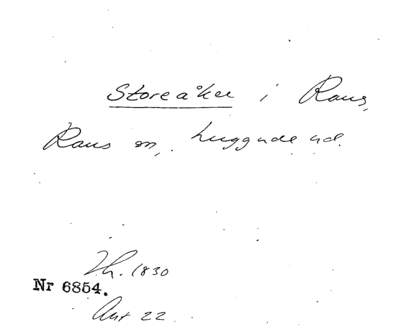 Storeåker i Raus,
Raus sn, Luggude hd.
Th. 1830
Nr 6854.
Akt 22